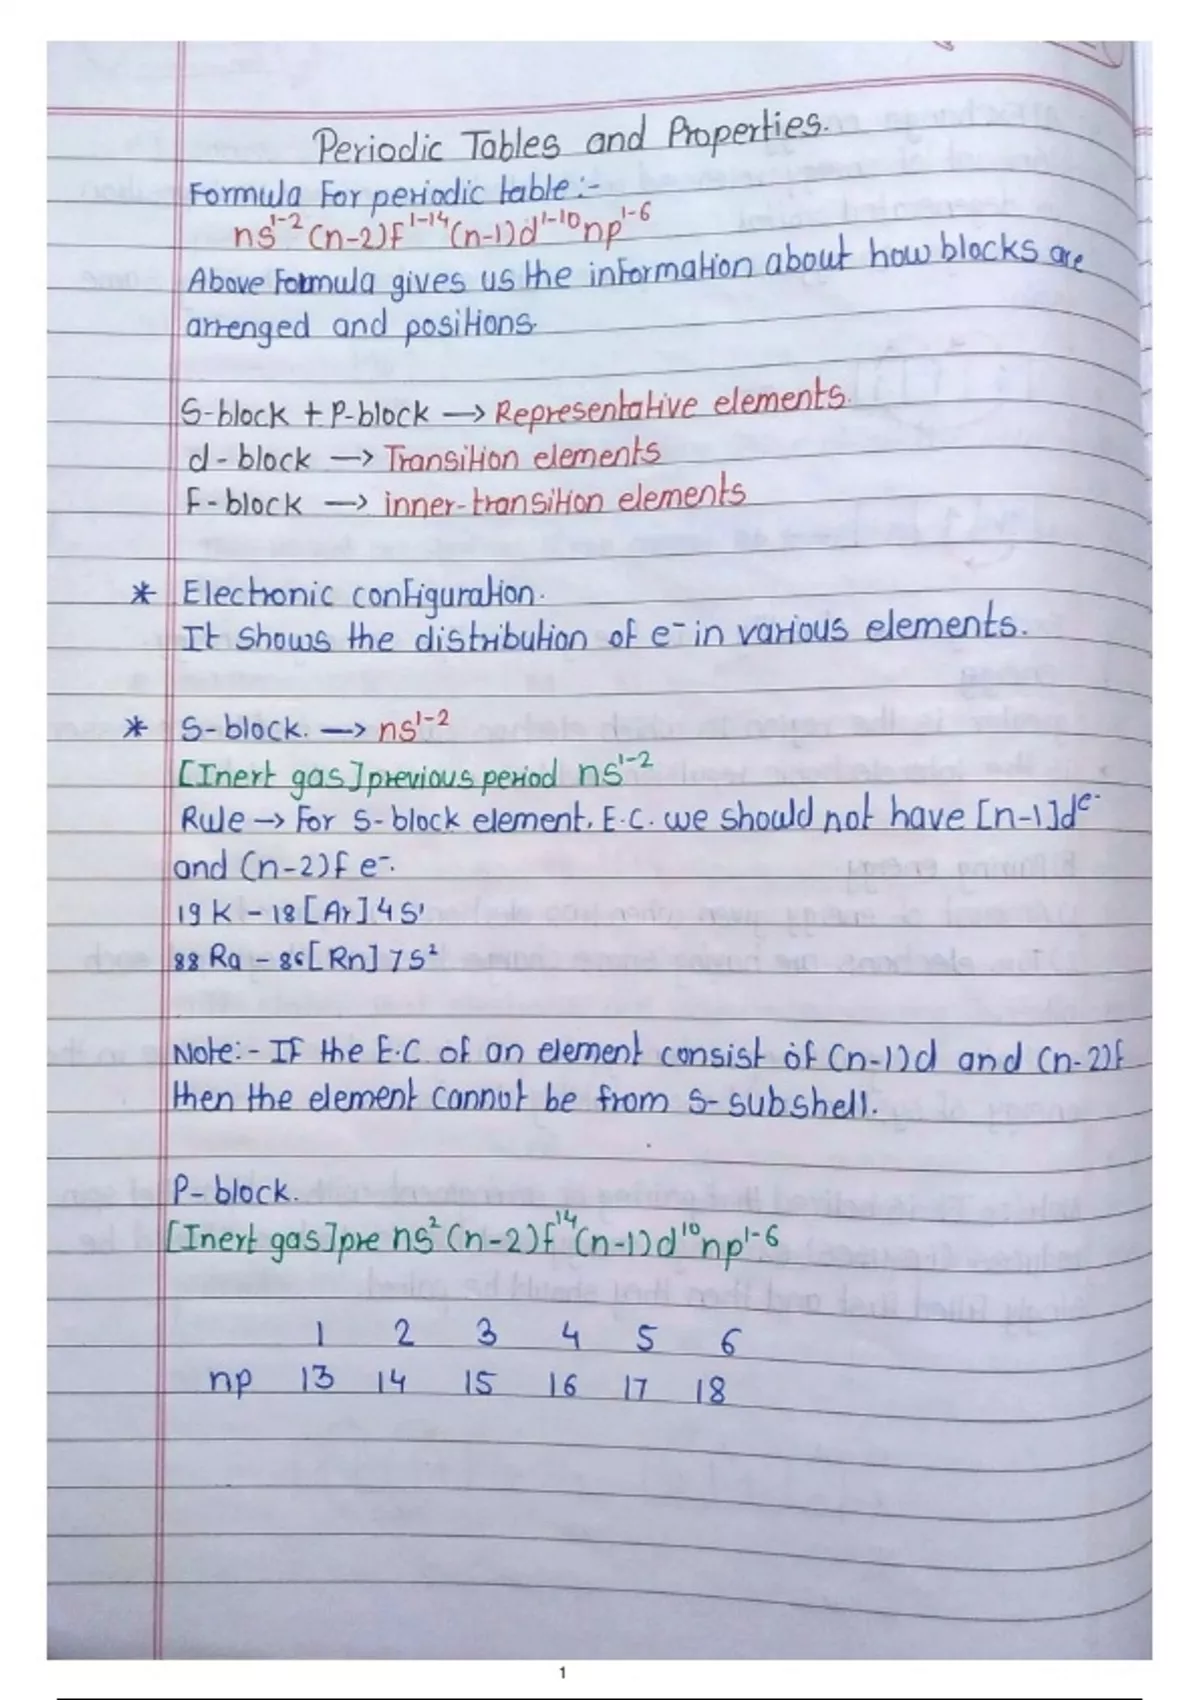 Periodic Tables and Properties.
Formula For periodic table :-
ns¹⁻² (n-2)f¹⁻¹⁴ (n-1)d¹⁻¹⁰ np¹⁻⁶
Above Formula gives us the information about how blocks are
arrenged and positions.
S-block + P-block → Representative elements.
d - block → Transition elements
F - block → inner-transition elements
* Electronic configuration.
It shows the distribution of e⁻ in various elements.
* S-block. → ns¹⁻²
[Inert gas] previous period ns¹⁻²
Rule → For s-block element, E.C. we should not have [n-1]d e⁻
and (n-2)f e⁻.
19 K - 18 [Ar] 4s¹
88 Ra - 86 [Rn] 7s²
Note:- IF the E.C. of an element consist of (n-1)d and (n-2)f
then the element cannot be from s-subshell.
P-block.
[Inert gas] pre ns² (n-2)f¹⁴ (n-1)d¹⁰ np¹⁻⁶
1 2 3 4 5 6
np 13 14 15 16 17 18
1